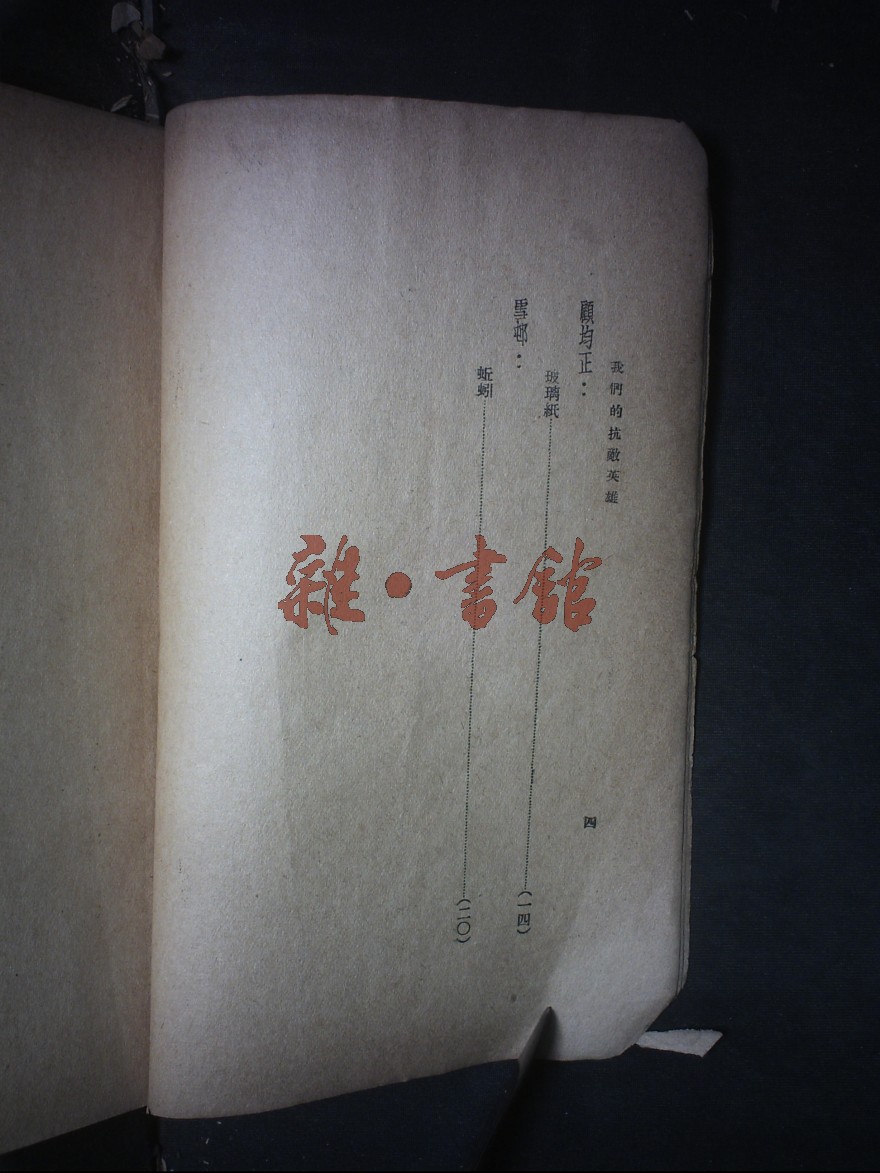 我們的抗敵英雄
四
顧均正：
玻璃紙……（一四）
雪邨：
蚯蚓……（二〇）
雜·書館